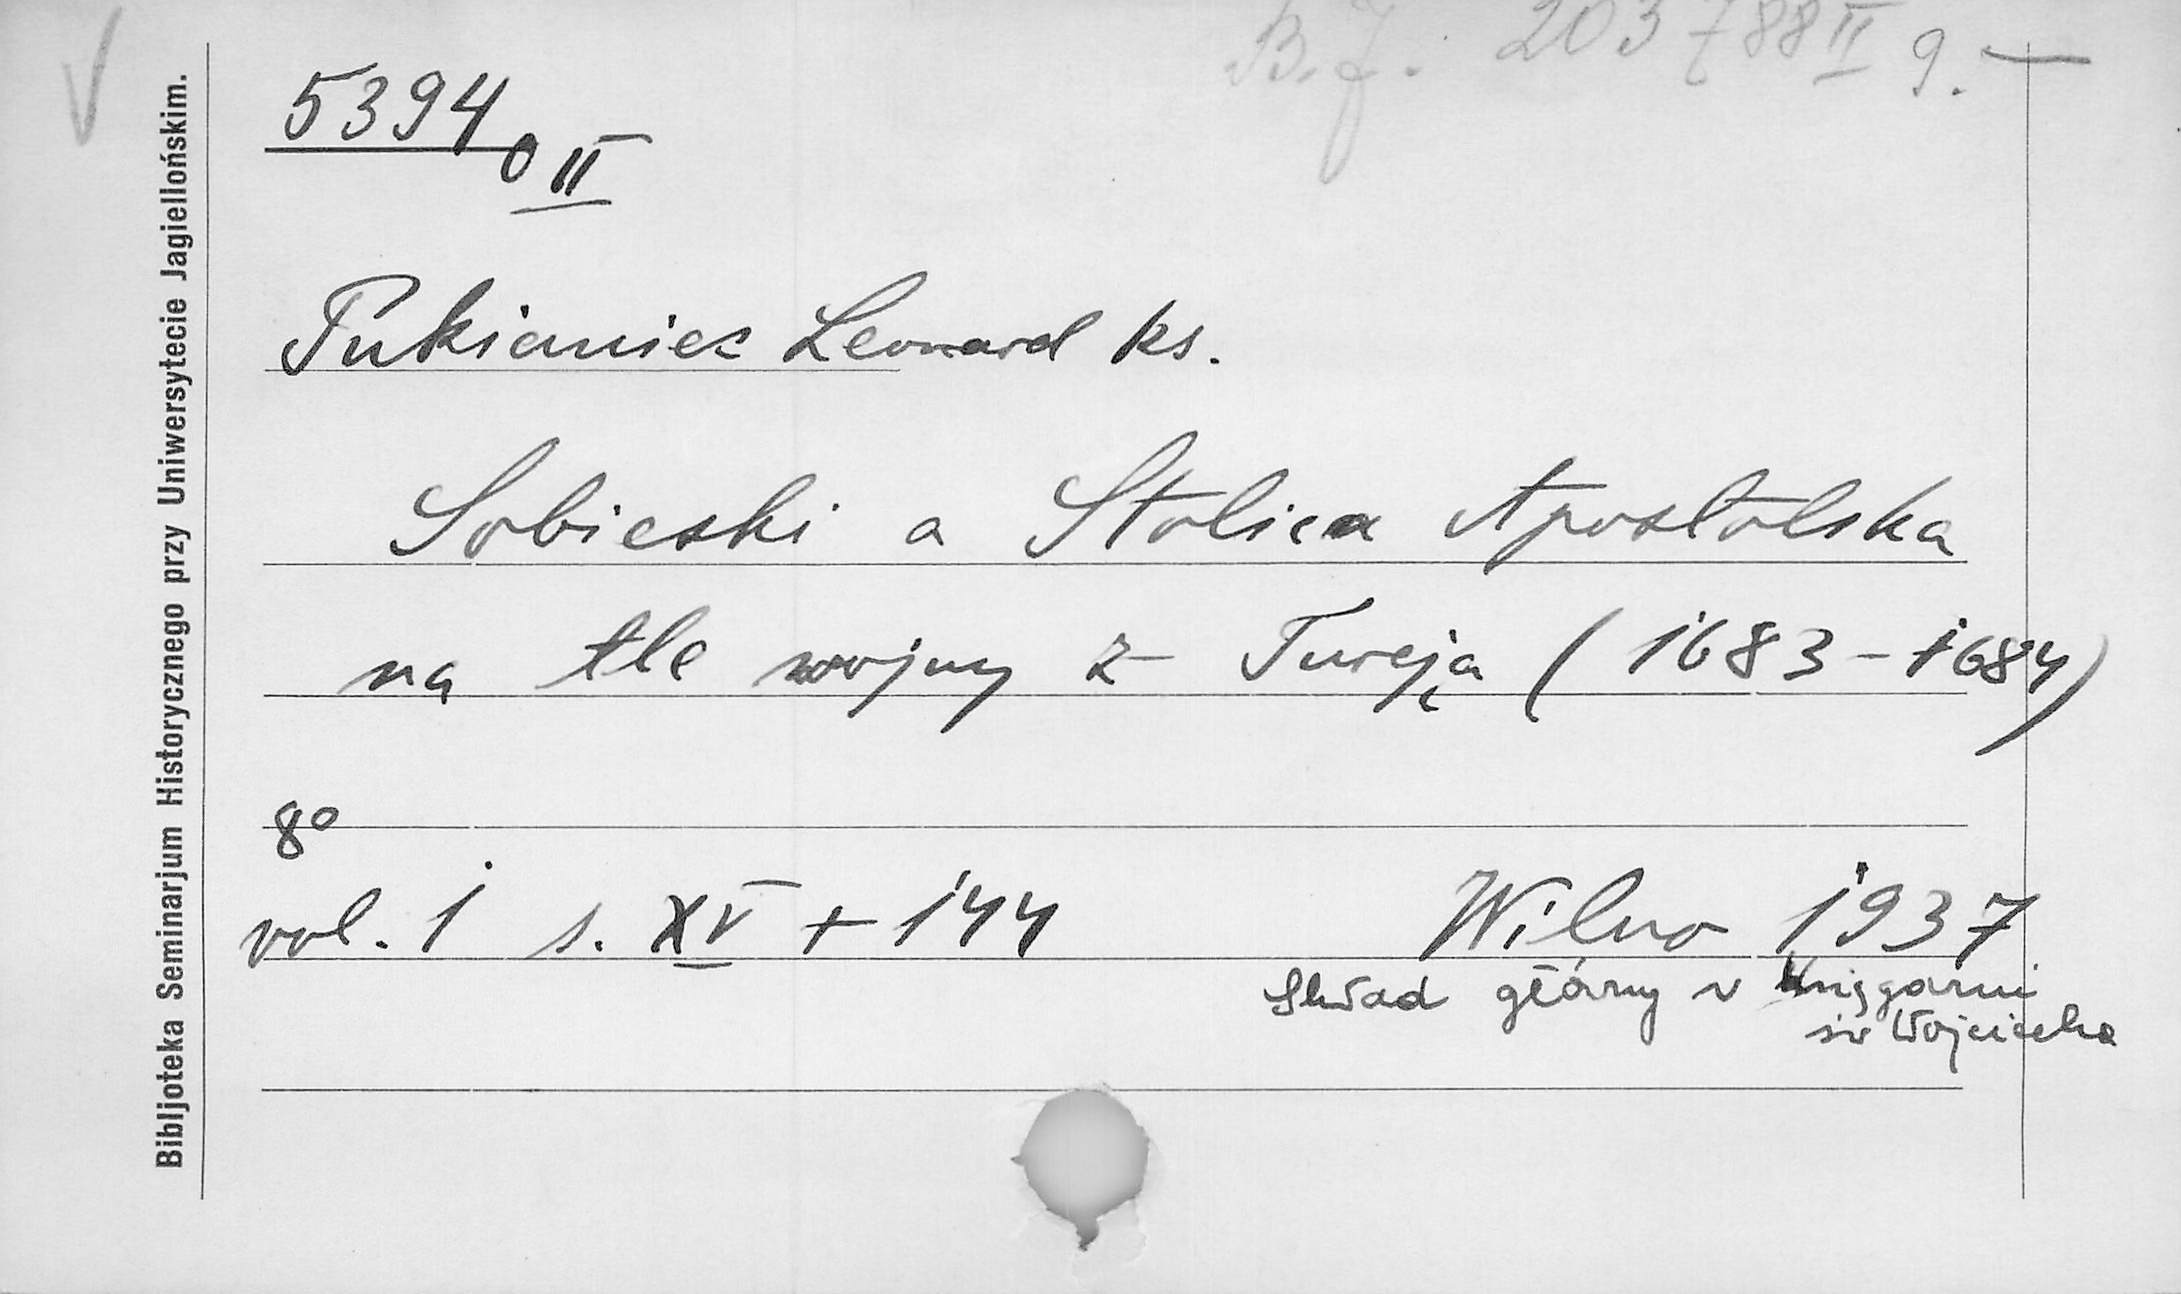 B.J. 203788 II 9.—
5394 0 II
Pukianiec Leonard ks.
Sobieski a Stolica Apostolska
na tle wojny z Turcją (1683-1684)
8º
vol. 1 s. XV + 144 Wilno 1937
Skład główny w Księgarni
św Wojciecha
Bibljoteka Seminarjum Historycznego przy Uniwersytecie Jagiellońskim.